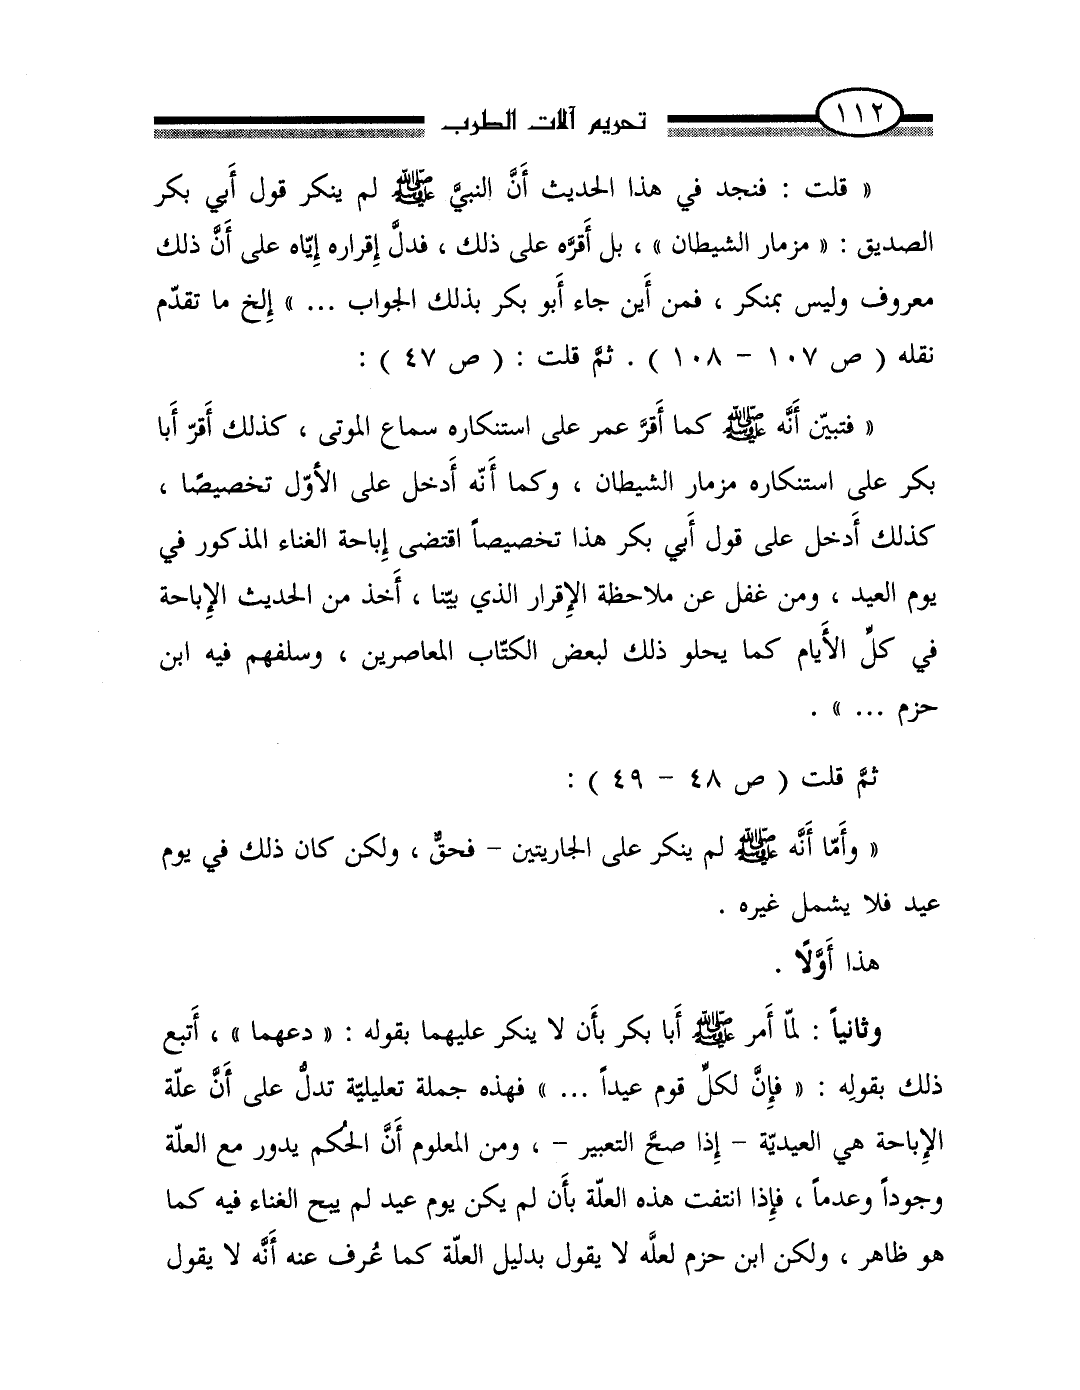 ١١٢
تحريم آلات الطرب
« قلت : فنجد في هذا الحديث أَنَّ النبيَّ ﷺ لم ينكر قول أَبي بكر
الصديق : « مزمار الشيطان » ، بل أَقرَّه على ذلك ، فدلَّ إِقراره إِيّاه على أَنَّ ذلك
معروف وليس بمنكر ، فمن أَين جاء أَبو بكر بذلك الجواب ... » إِلخ ما تقدّم
نقله ( ص ١٠٧ - ١٠٨ ) . ثمَّ قلت : ( ص ٤٧ ) :
« فتبيّن أَنَّه ﷺ كما أَقرَّ عمر على استنكاره سماع الموتى ، كذلك أَقرّ أَبا
بكر على استنكاره مزمار الشيطان ، وكما أَنّه أَدخل على الأوّل تخصيصًا ،
كذلك أَدخل على قول أَبي بكر هذا تخصيصاً اقتضى إِباحة الغناء المذكور في
يوم العيد ، ومن غفل عن ملاحظة الإِقرار الذي بيّنا ، أَخذ من الحديث الإِباحة
في كلِّ الأَيام كما يحلو ذلك لبعض الكتّاب المعاصرين ، وسلفهم فيه ابن
حزم ... » .
ثمَّ قلت ( ص ٤٨ - ٤٩ ) :
« وأَمّا أَنَّه ﷺ لم ينكر على الجاريتين - فحقٌّ ، ولكن كان ذلك في يوم
عيد فلا يشمل غيره .
هذا أَوَّلًا .
وثانياً : لمّا أَمر ﷺ أَبا بكر بأَن لا ينكر عليهما بقوله : « دعهما » ، أَتبع
ذلك بقولِه : « فإِنَّ لكلِّ قوم عيداً ... » فهذه جملة تعليليّة تدلُّ على أَنَّ علّة
الإِباحة هي العيديّة - إِذا صحَّ التعبير - ، ومن المعلوم أَنَّ الحُكم يدور مع العلّة
وجوداً وعدماً ، فإِذا انتفت هذه العلّة بأَن لم يكن يوم عيد لم يبح الغناء فيه كما
هو ظاهر ، ولكن ابن حزم لعلَّه لا يقول بدليل العلّة كما عُرف عنه أَنَّه لا يقول